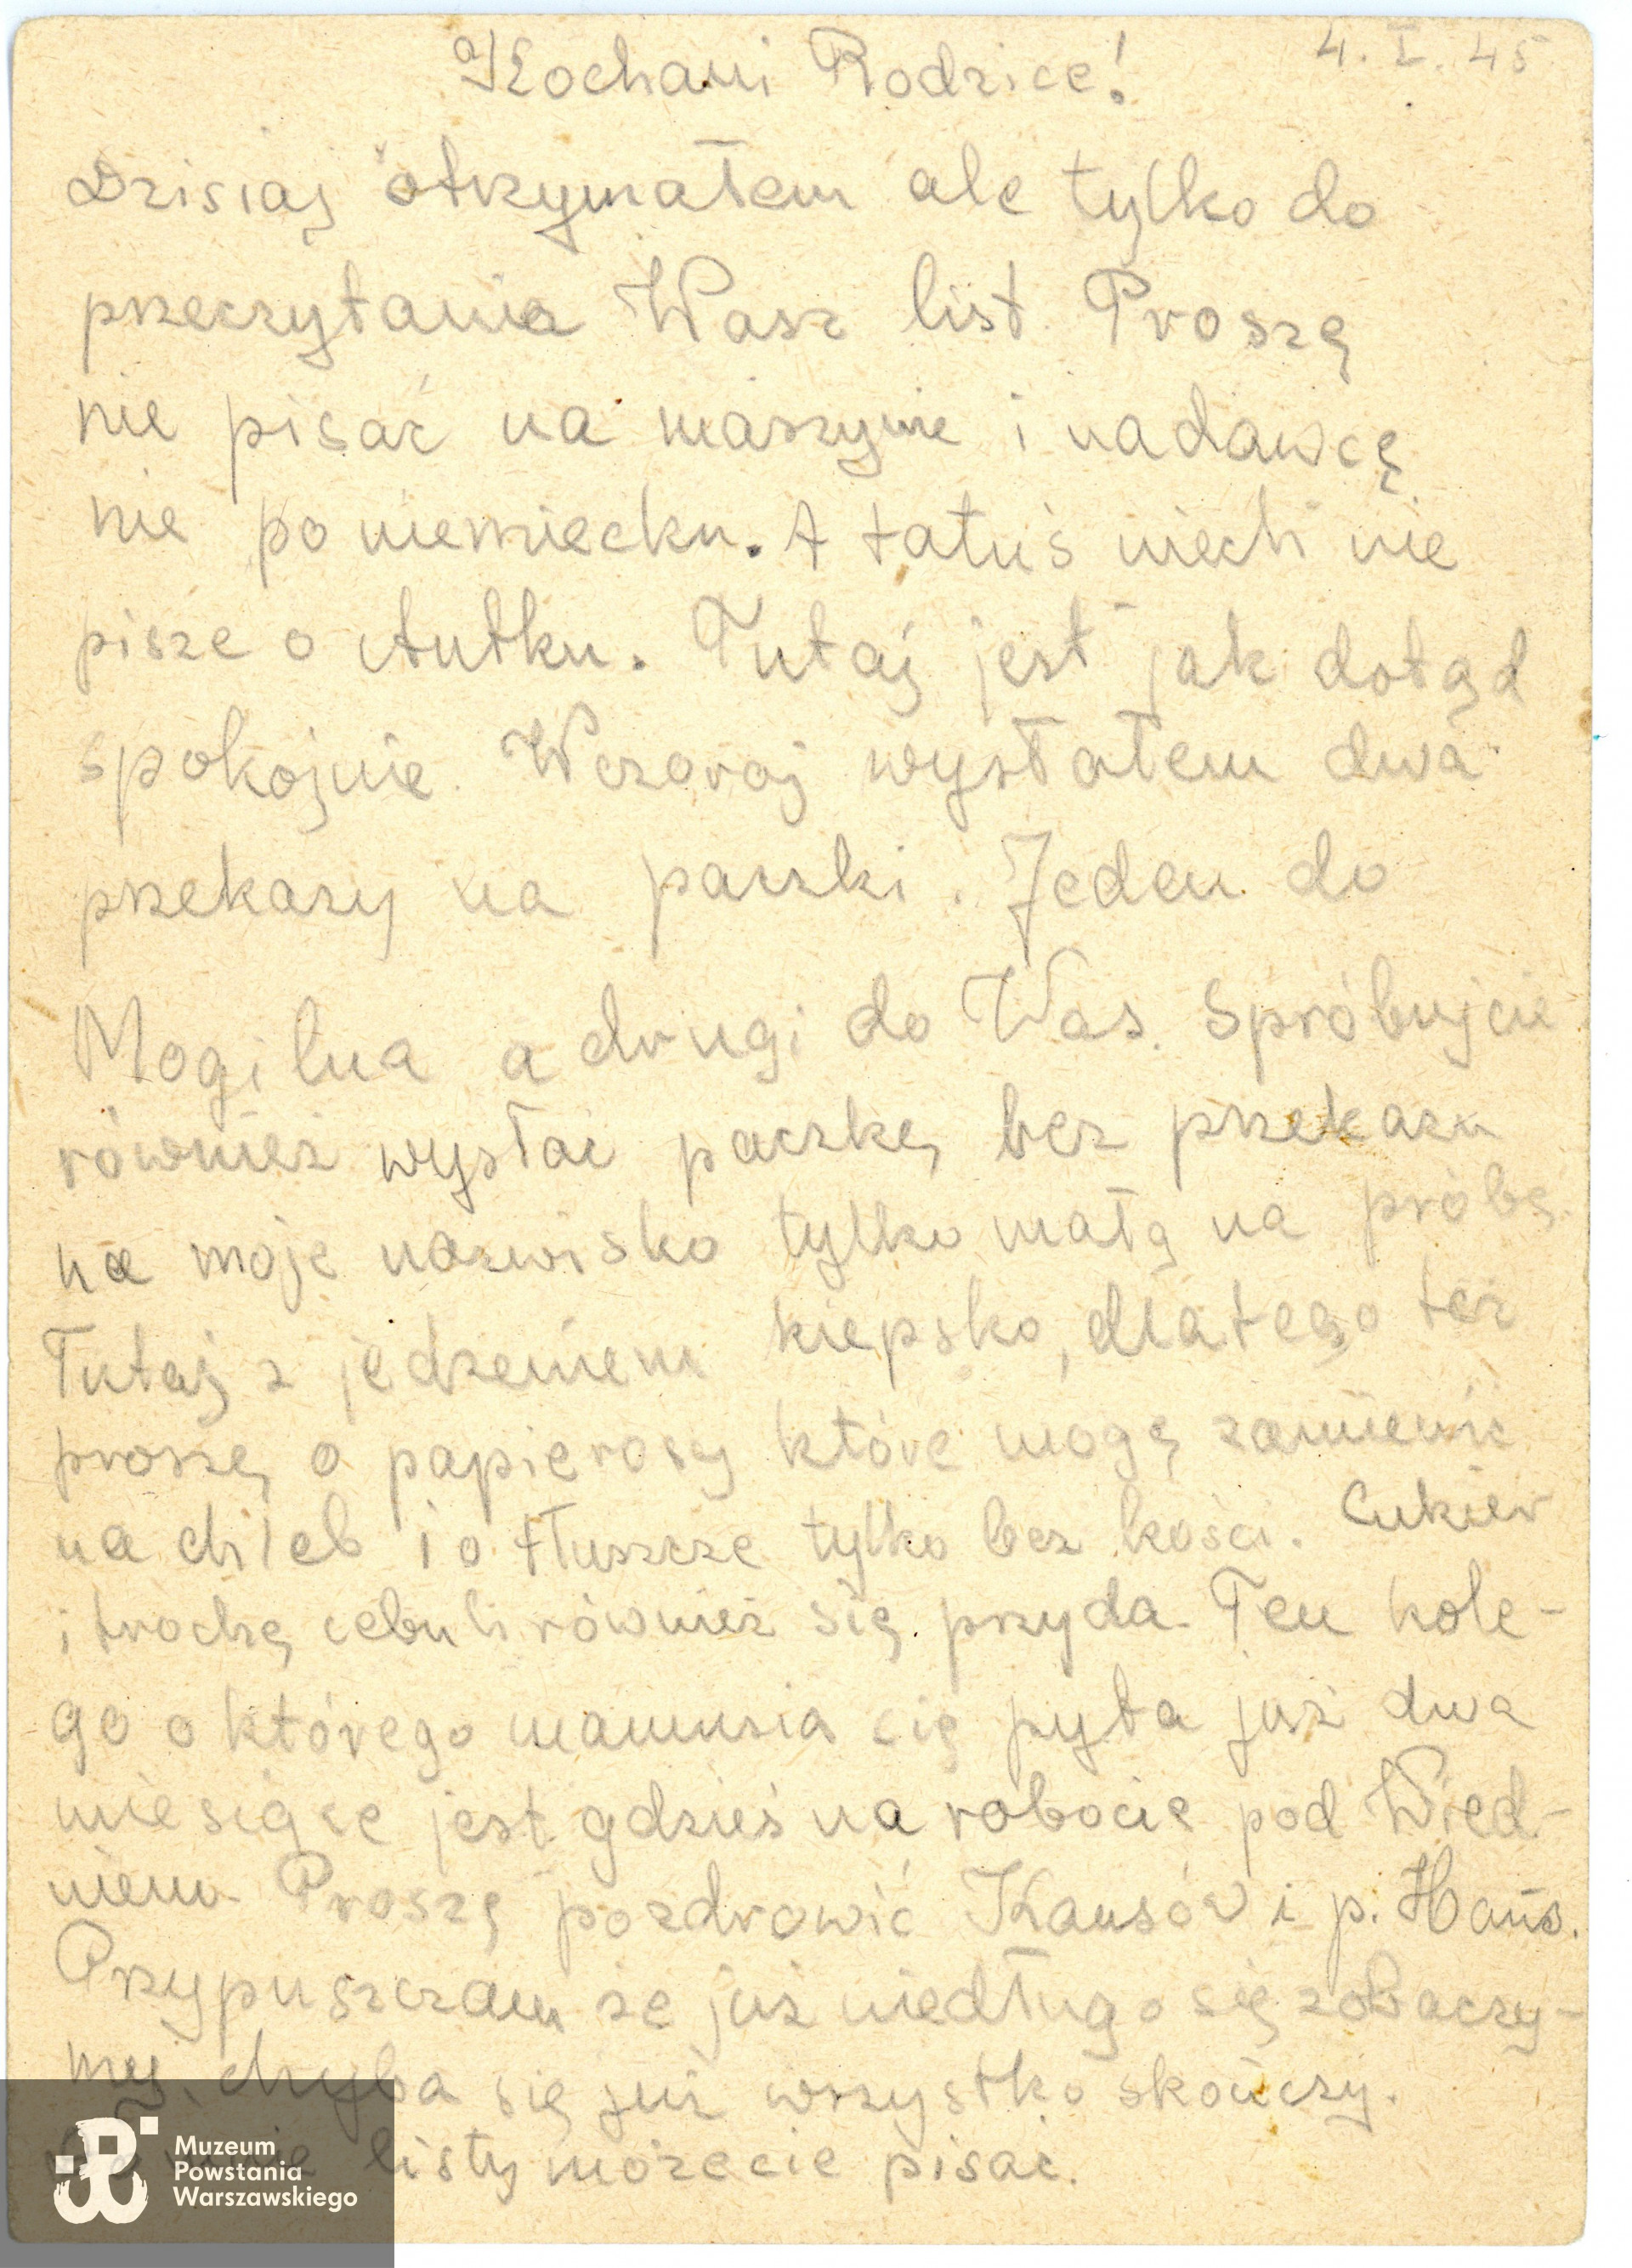 4. I. 45
Kochani Rodzice!
Dzisiaj otrzymałem ale tylko do
przeczytania Wasz list. Proszę
nie pisać na maszynie i nadawcę
nie po niemiecku. A tatuś niech nie
pisze o Antku. Tutaj jest jak dotąd
spokojnie. Wczoraj wysłałem dwa
przekazy na paczki. Jeden do
Mogilna a drugi do Was. Spróbujcie
również wysłac paczkę bez przekazu
na moje nazwisko tylko małą na próbę.
Tutaj z jedzeniem kiepsko, dlatego też
proszę o papierosy które mogę zamienić
na chleb i o tłuszcze tylko bez kości. Cukier
i trochę cebuli również się przyda. Ten kole-
go o którego mamusia się pyta już dwa
miesiące jest gdzieś na robocie pod Wied-
niem. Proszę pozdrowić Kansów i p. Hańs.
Przypuszczam że już niedługo się zobaczy-
my, chyba się już wszystko skończy.
listy możecie pisac.
Muzeum
Powstania
Warszawskiego